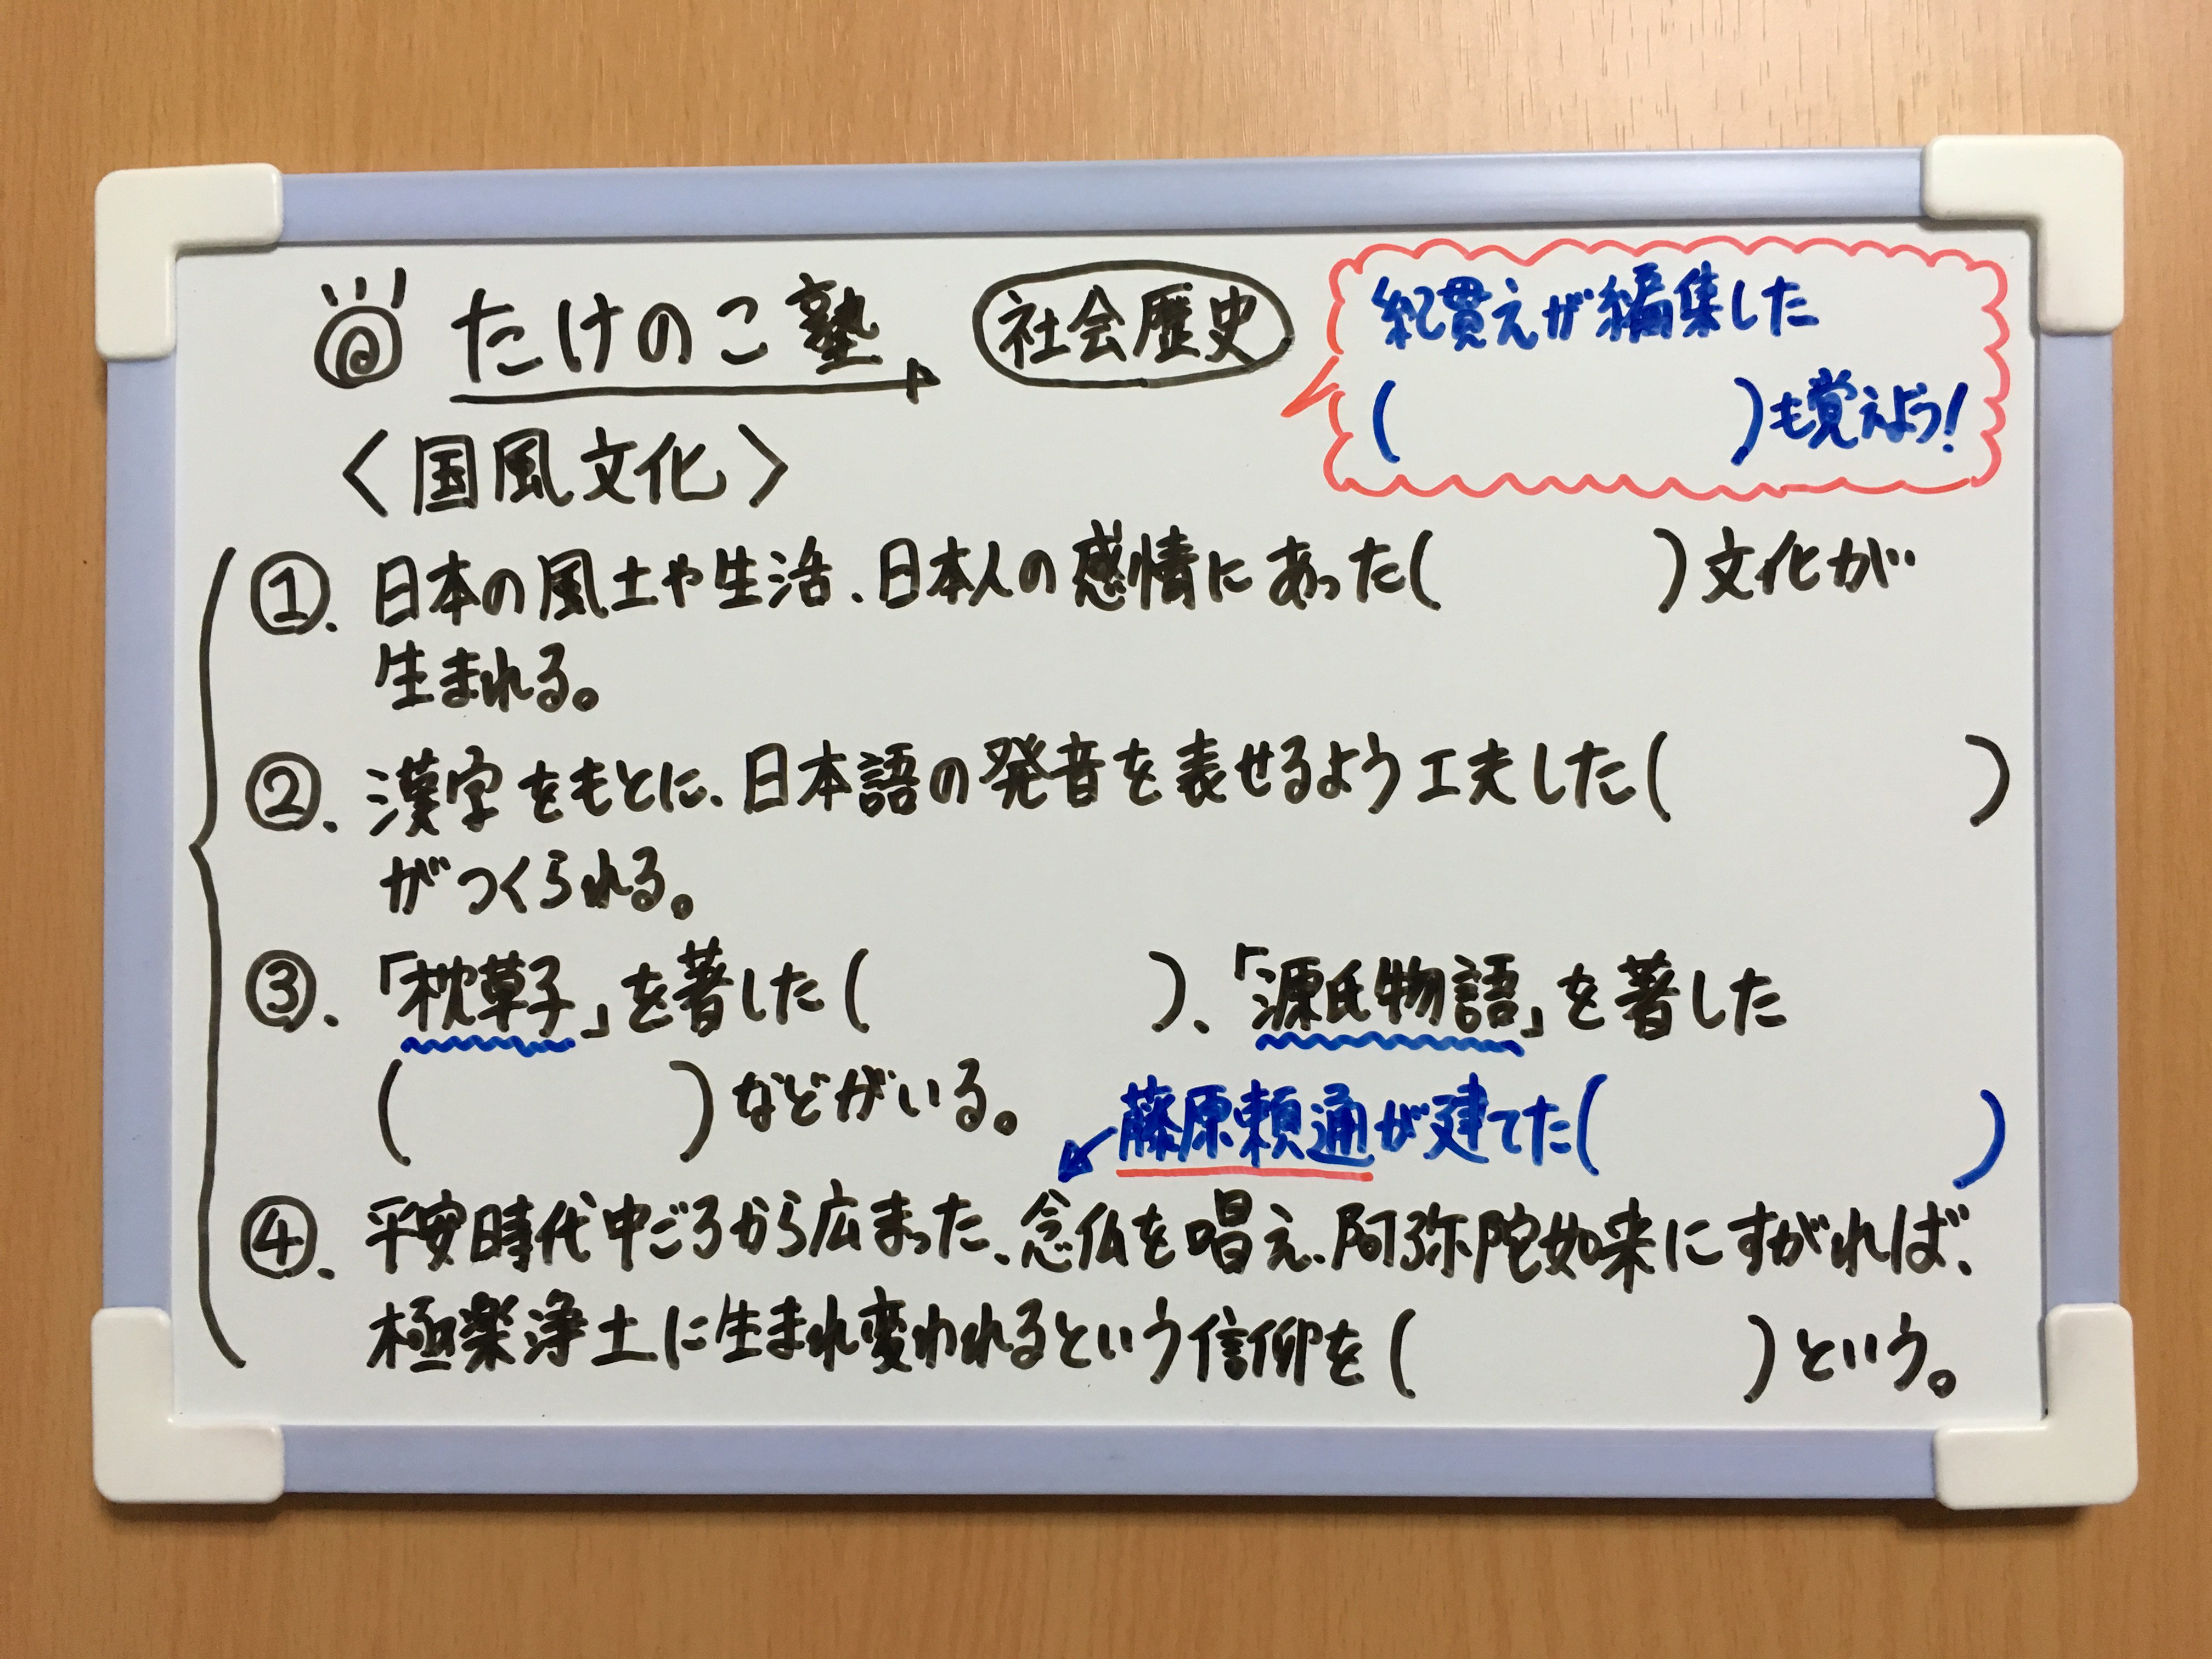 たけのこ塾 社会歴史
紀貫えが編集した
(　　　　)も覚えよう!
〈国風文化〉
①. 日本の風土や生活、日本人の感情にあった(　　　　)文化が
生まれる。
②. 漢字をもとに、日本語の発音を表せるよう工夫した(　　　　)
がつくられる。
③. 「枕草子」を著した(　　　　)、「源氏物語」を著した
(　　　　)などがいる。
藤原頼通が建てた(　　　　)
④. 平安時代中ごろから広まった、念仏を唱え、阿弥陀如来にすがれば、
極楽浄土に生まれ変われるという信仰を(　　　　)という。